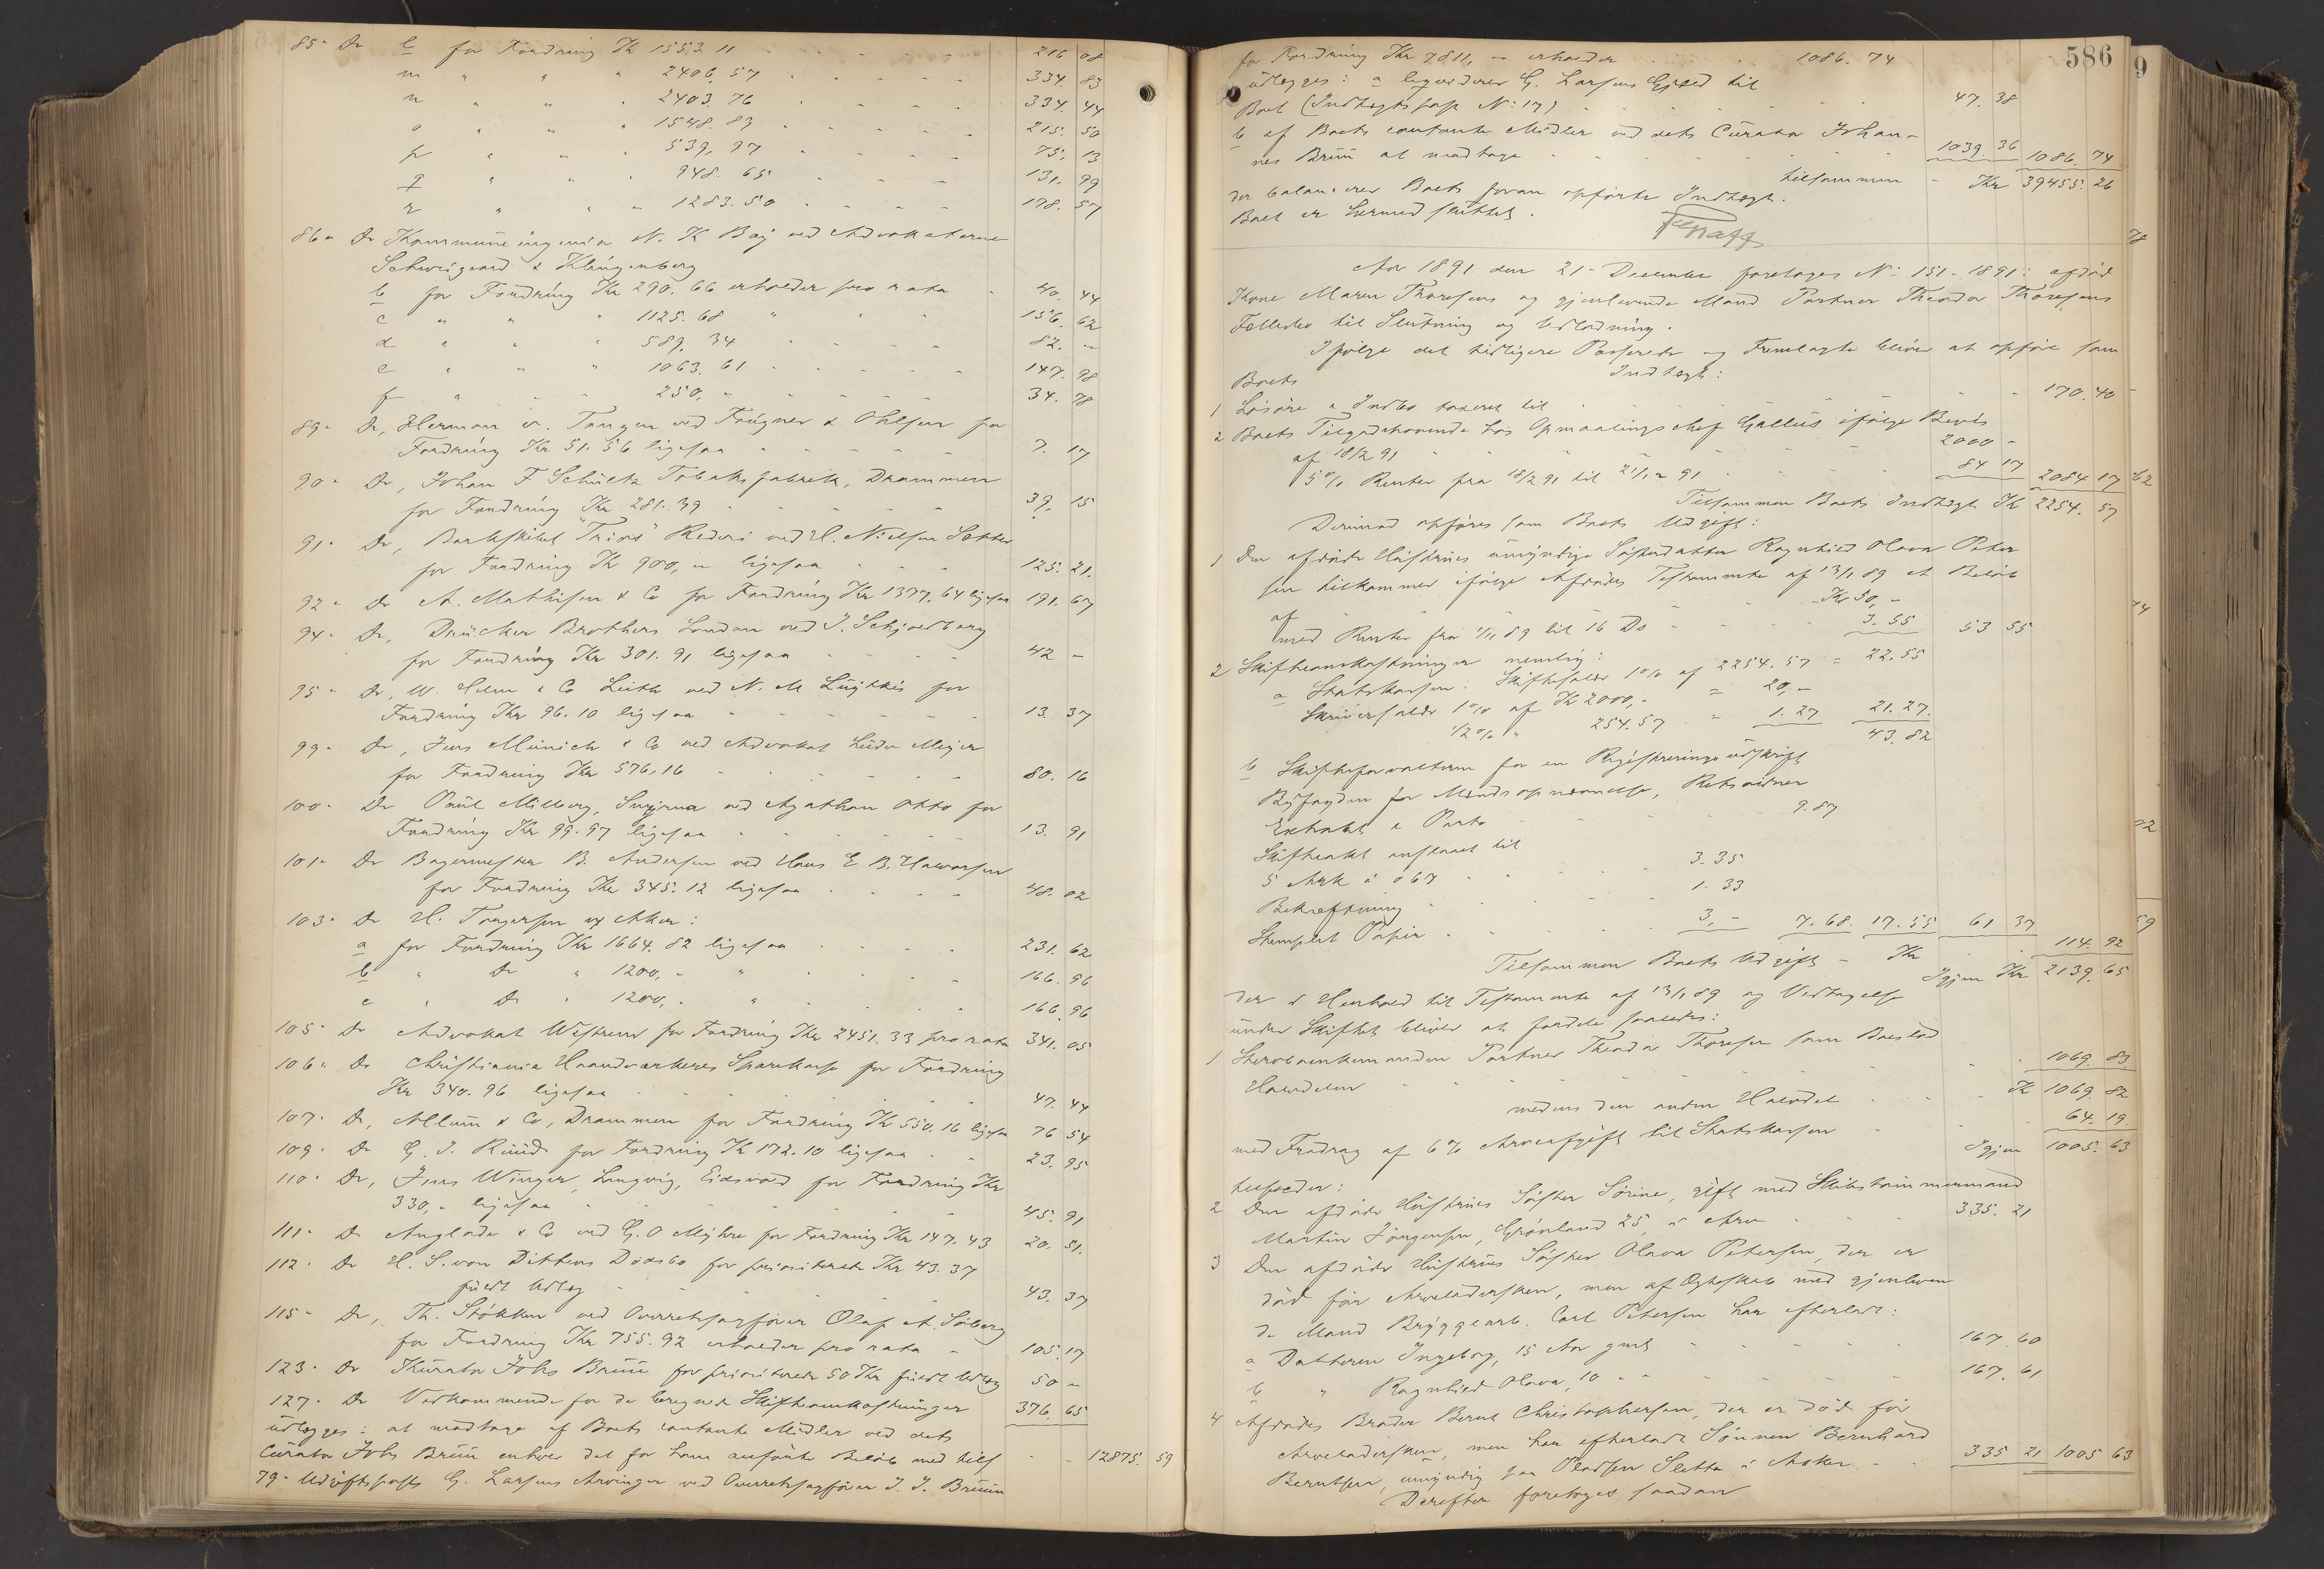 85 - Do l for Fordring Kr 1553. 11 - - - - 216 08
m " " " 2406. 57 - - - - 334. 83
n " " " 2403. 76 - - - - 334. 44
o " " " 1548. 83 - - - - 215. 50
p " " " 539. 97 - - - - 75. 13
q " " " 948. 65 - - - - 131. 99
r " " " 1283. 50 - - - - 178. 57
86 - Do Kommuneingeniør N. K Bøj ved Advokaterne
Schweigaard & Klingenberg
b for Fordring Kr 290. 66 erholder pro rata - 40. 44
c " " " 1125. 68 " " " 156. 62
d " " " 589. 34 - - - - 82. -
e " " " 1063. 61 - - - - 147. 98
f " " " 250, - - - - - 34. 78
89 - Do, Herman v. Tangen ved Frugner & Ohlsen for
Fordring Kr 51. 56 ligesaa - - - - 7. 17
90 - Do, Johan F Schultz Tobaksfabrik, Drammen
for Fordring Kr 281. 39 - - - - 39. 15
91 - Do, Barkskibet "Trios" Rederi ved H. Nielsen Sætter
for Fordring Kr 900, - ligesaa - - - 125. 21.
92 - Do A. Mathisen & Co for Fordring Kr 1377. 64 ligesaa 191. 67
94 - Do, Drücker Brothers London ved J. Schjoldborg
for Fordring Kr 301. 91 ligesaa - - - 42 -
95 - Do, W. Helm & Co Leith ved N. M Lügtkis for
Fordring Kr 96. 10 ligesaa - - - - 13. 37
99 - Do, Jens Münich & Co ved Advokat Lüder Meyer
for Fordring Kr 576, 16 - - - - 80. 16
100 - Do Paul Milberg, Smyrna ved Agathon Otto for
Fordring Kr 99. 97 ligesaa - - - - 13. 91
101 - Do Bagermester B. Andersen ved Hans E B. Halvorsen
for Fordring Kr 345. 12 ligesaa - - - 48. 02
103 - Do H. Torgersen og Aker:
a for Fordring Kr 1664. 82 ligesaa - - - 231. 62
b " Do " 1200, - " - - - 166. 96
c " Do " 1200, - " - - - 166. 96
105 - Do Advokat Westrum for Fordring Kr 2451. 33 pro rata 341. 05
106 - Do Christiania Haandværkeres Sparekasse for Fordring
Kr 340. 96 ligesaa - - - - 47. 44
107 - Do, Allum & Co, Drammen for Fordring Kr 550. 16 ligesaa 76 54
109 - Do G. J. Ruud for Fordring Kr 172. 10 ligesaa - - 23. 95
110 - Do, Jens Winger, Langvig, Eidsvold for Fordring Kr
330, - ligesaa - - - - 45. 91
111 - Do Anglade & Co ved G. O Myhre for Fordring Kr 147. 43 20. 51.
112 - Do H. S. von Dittens Dødsbo for prioriterede Kr 43. 37
fuldt Udlæg - - - - 43. 37
115 - Do, Th. Støkken ved Overretssagfører Olaf A. Søberg
for Fordring Kr 755. 92 erholder pro rata - 105. 17
123 - Do Kurator Johs Bruun for prioriterede 50 Kr fuldt Udlæg 50 -
127 - Do Vedkommende for de beregnede Skifteomkostninger 376. 65
udlægges: at modtage af Boets contante Midler ved dets
Curator Johs Bruun enhver det for ham anførte Beløb med tils - - 12875. 59
79 - Udgiftspost G. Larsens Arvinger ved Overretssagfører J. J. Bruun
586
for Fordring Kr 7811, - erholder - - 1086. 74
udlægges: a liqviderer G. Larsens Gjæld til
Boet (Indtægtspost No: 17) - - - - 47. 38
b af Boets contante Midler ved dets Curator Johan-
nes Bruun at modtage - - - - 1039. 36 1086. 74
tilsammen - Kr 39455. 26
der balancerer Boets foran opførte Indtægt.
Boet er hermed sluttet.
Aar 1891 den 21 - December foretoges No: 151 - 1891: afdød
Kone Maren Thoresens og gjenlevende Mand Portner Theodor Thoresens
Fællesbo til Slutning og Udlodning.
Ifølge det tidligere Passerede og Fremlagte bliver at opføre som
Boets Indtægt:
1 Løsøre & Indbo taxeret til - - - - 170. 40 -
2 Boets Tilgodehavende hos Opmaalingschef Gallus ifølge Bevis
af 18/2 91 - - - - 2000 -
5% Renter fra 18/2 91 til 21/12 91 - - - 84 17 2084 17
Tilsammen Boets Indtægt Kr 2254. 57
Derimod opføres som Boets Udgift:
1 Den afdøde Hustrues umyndige Søsterdatter Ragnhild Olava Peter
sen tilkommer ifølge Afdødes Testamente af 13/1 89 et Beløb
af - - - - Kr 50, -
med Renter fra 1/11 89 til 16 Ds - - - 3. 55 53 55
2 Skifteomkostninger nemlig:
a Statskassen: Skiftesalær 1% af 2254. 57 = 22. 55
Skriversalær 1% af Kr 2000, - = 20, -
1/2% " 254. 57 - " 1. 27 21. 27.
43. 82
b Skifteforvalteren for en Registreringsudskrift
Byfogden for Mændsopnævnelse, Retsvidner
Extrakt & Porto - - - - 9. 87
Skifteakt anslaaet til
5 Ark à 067 - - - - 3. 35
Bekræftning - - - - 1. 33
Stemplet Papir - - - 3, - 7. 68. 17. 55 61 37
Tilsammen Boets Udgift - Kr - 114. 92
Igjen Kr 2139. 65
der i Henhold til Testamente af 13/1 89 og Vedtagelse
under Skiftet bliver at fordele saaledes:
1 Skarobaenkemanden Portner Theodor Thoresen som Boeslod
Halvdelen - - - - 1069. 83
medens den anden Halvdel - - - Kr 1069. 82
med Fradrag af 6% Arveafgift til Statskassen - - 64. 19
Igjen 1005. 63
tilfalder:
2 Den afdøde Hustrues Søster Sørine, gift med Skibstømmermand
Martin Jørgensen, Grønland 25, i Arv - - - 335. 21
3 Den afdøde Hustrues Søster Olava Petersen, der er
død før Arveladersken, men af Ægteskab med gjenleven
de Mand Bryggearb. Carl Petersen har efterladt:
a Datteren Ingeborg, 15 Aar gml - - - - 167. 60
b " Ragnhild Olava, 10 - " - - - 167. 61
4 Afdødes Broder Bernt Christophersen, der er død før
Arveladersken, men har efterladt Sønnen Bernhard
Berntsen, umyndig paa Oladsen Sletta i Asker - - 335 21 1005 63
Derefter foretoges saadan